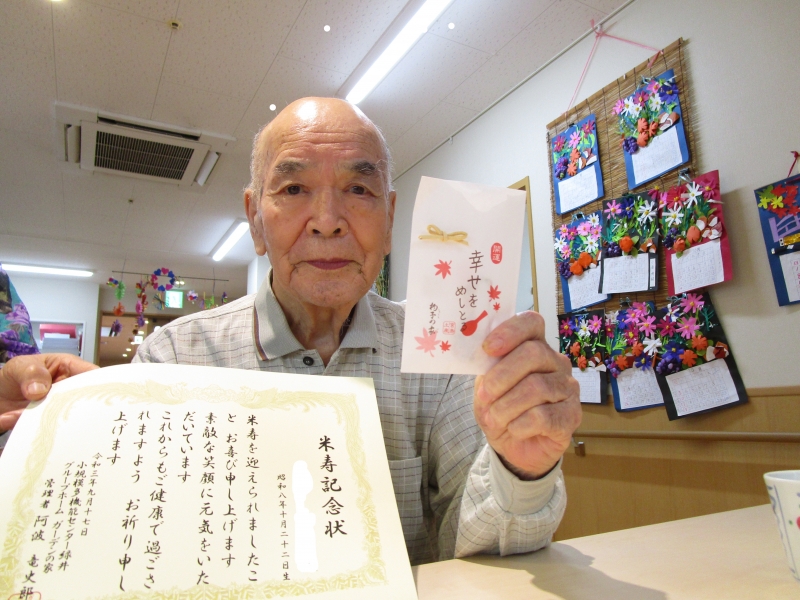 米寿記念状
昭和八年十月二十二日生
米寿を迎えられましたこ
と お喜び申し上げます
素敵な笑顔に元気をいた
だいています
これからもご健康で過ごさ
れますよう お祈り申し
上げます
令和三年九月十七日
小規模多機能センター緑井
グループホーム ガーデンの家
管理者 阿波 竜史郎
開運
幸せを
めしとる